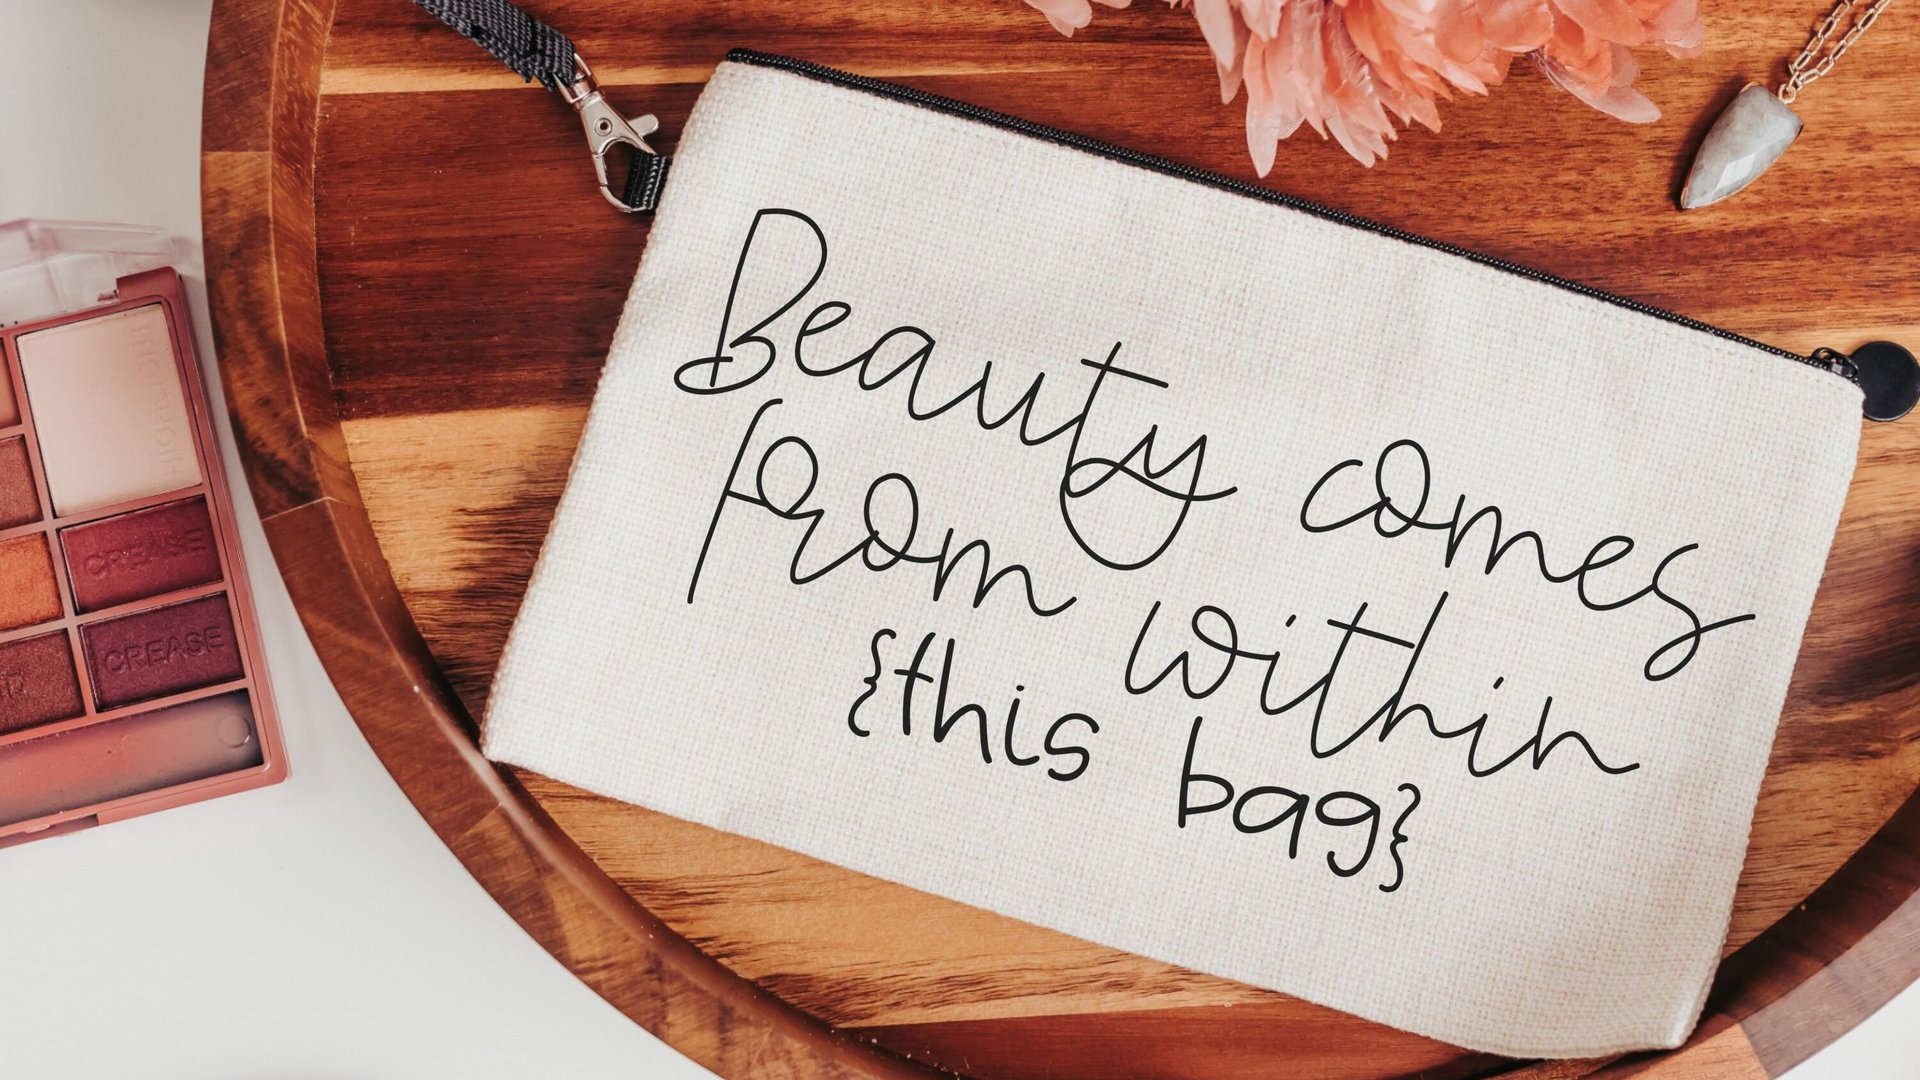 Beauty comes
from within
{this bag}
CREASE
CREASE